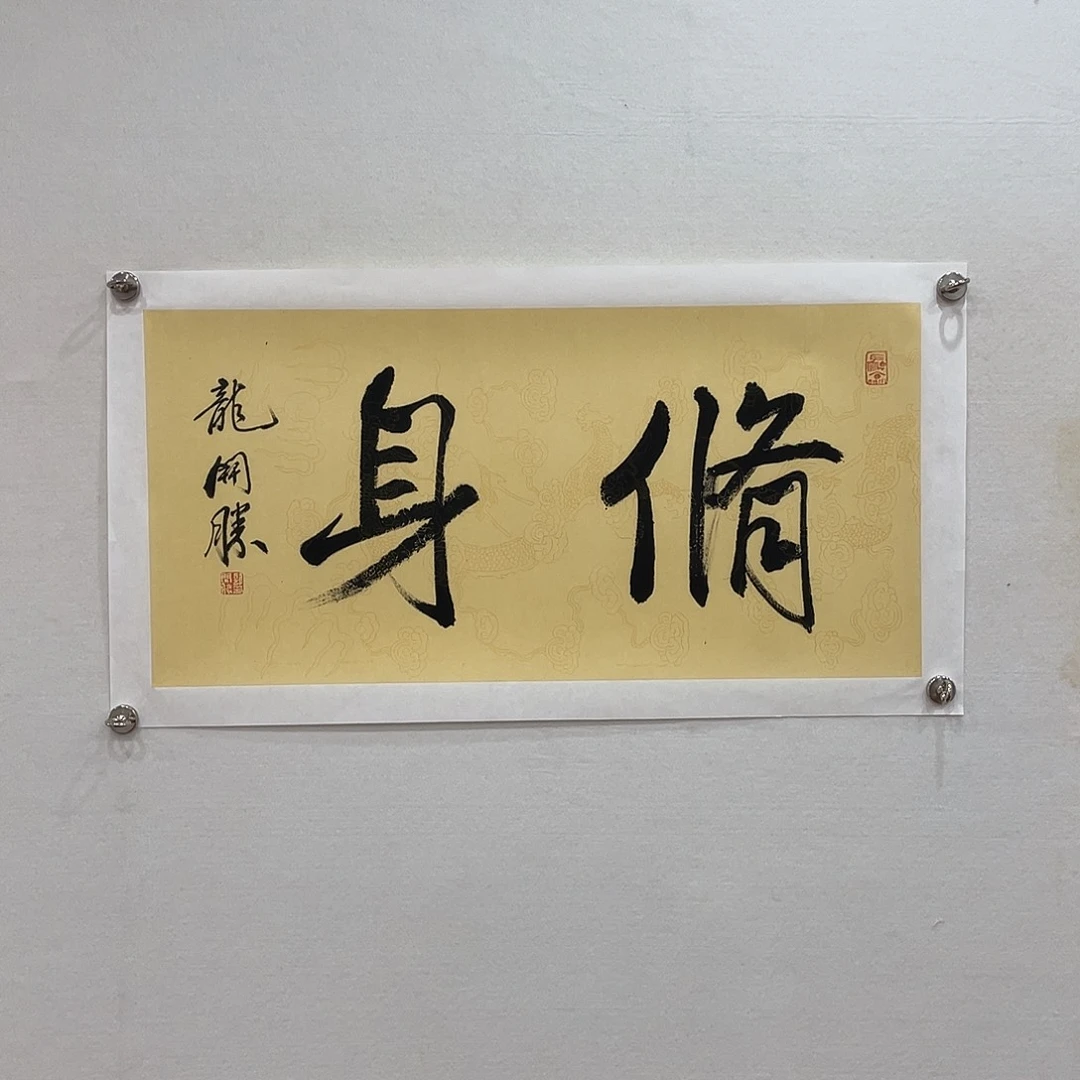 脩身
龍開勝